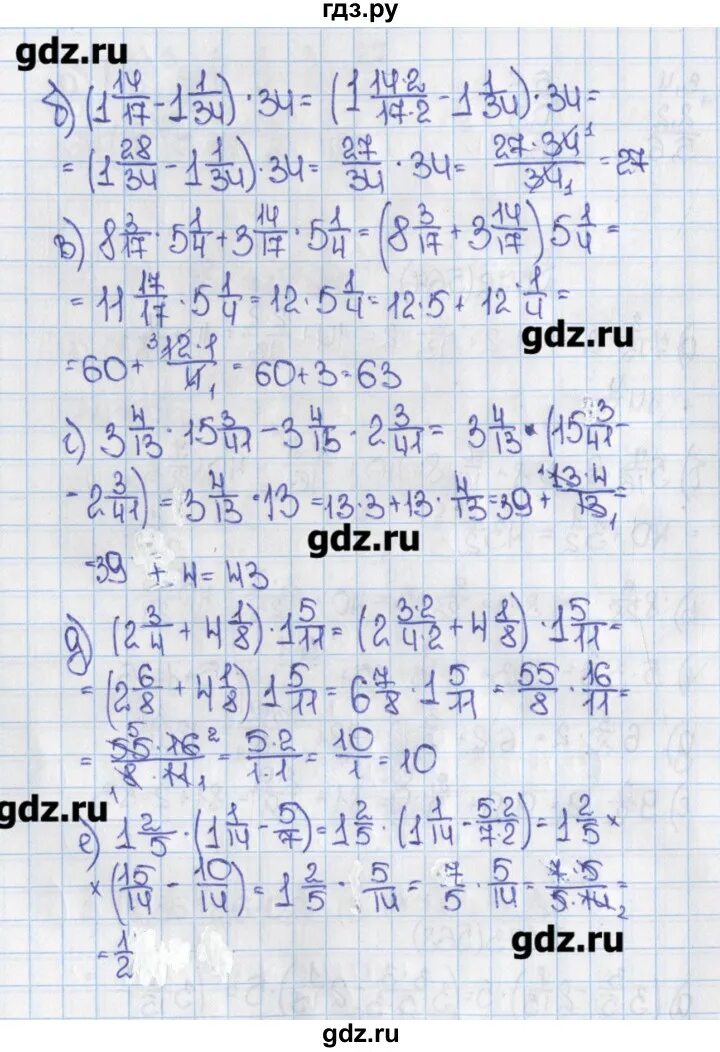 гдз.ру
gdz.ru
б) (1 14/17 - 1 1/34) · 34 = (1 14·2/17·2 - 1 1/34) · 34 =
= (1 28/34 - 1 1/34) · 34 = 27/34 · 34 = 27·34 1/34 1 = 27
в) 8 3/17 · 5 1/4 + 3 14/17 · 5 1/4 = (8 3/17 + 3 14/17) 5 1/4 =
= 11 17/17 · 5 1/4 = 12 · 5 1/4 = 12·5 + 12 · 1/4 =
gdz.ru
= 60 + 3 12·1/4 1 = 60 + 3 = 63
г) 3 4/13 · 15 3/41 - 3 4/13 · 2 3/41 = 3 4/13 · (15 3/41 -
- 2 3/41) = 3 4/13 · 13 = 13·3 + 13 · 4/13 = 39 + 1 13·4/13 1 =
gdz.ru
= 39 + 4 = 43
д) (2 3/4 + 4 1/8) · 1 5/11 = (2 3·2/4·2 + 4 1/8) · 1 5/11 =
= (2 6/8 + 4 1/8) 1 5/11 = 6 7/8 · 1 5/11 = 55/8 · 16/11 =
= 5 55·16 2/1 8·11 1 = 5·2/1·1 = 10/1 = 10
gdz.ru
е) 1 2/5 · (1 1/14 - 5/7) = 1 2/5 · (1 1/14 - 5·2/7·2) = 1 2/5 ×
× (15/14 - 10/14) = 1 2/5 · 5/14 = 7/5 · 5/14 = 7·5/5·14 2 =
= 1/2
gdz.ru
gdz.ru